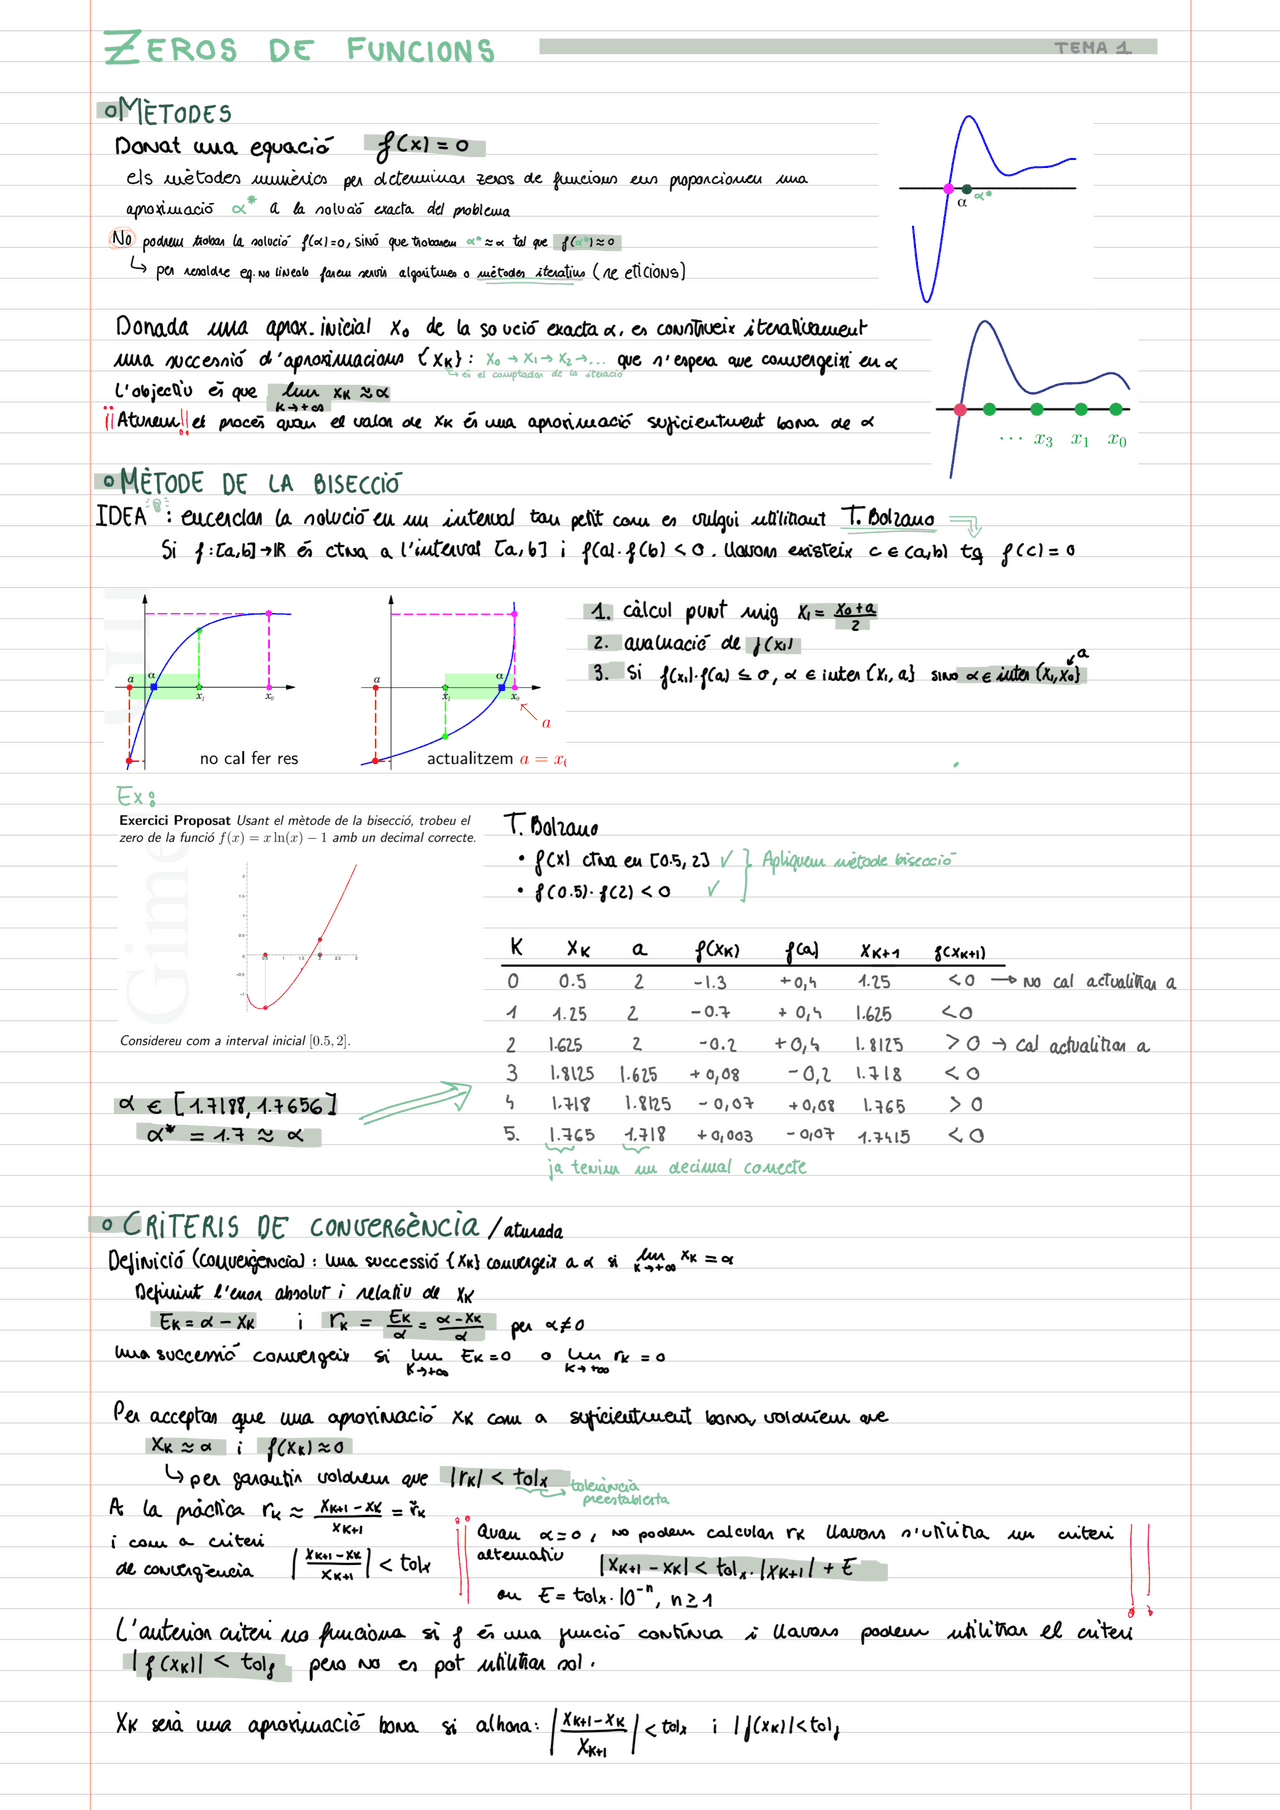 ZEROS DE FUNCIONS
TEMA 1
MÈTODES
Donat una equació f(x) = 0
els mètodes numèrics per determinar zeros de funcions ens proporcionen una
aproximació α* a la solució exacta del problema
No podrem trobar la solució f(α)=0, sinó que trobarem α* ≈ α tal que f(α*) ≈ 0
↳ per resoldre eq. no lineals farem servir algoritmes o mètodes iteratius (re eticions)
α α*
Donada una aprox. inicial x₀ de la so ució exacta α, es construeix iterativament
una successió d'aproximacions {xK}: x₀ → x₁ → x₂ → ... que s'espera que convergeixi en α
↳ és el comptador de la iteració
L'objectiu és que lim K→+∞ xK ≈ α
¡¡Aturem!! el procés quan el valor de xK és una aproximació suficientment bona de α
··· x₃ x₁ x₀
MÈTODE DE LA BISECCIÓ
IDEA : encerclar la solució en un interval tan petit com es vulgui utilitzant T. Bolzano
Si f:[a,b]→IR és ctna a l'interval [a,b] i f(a)·f(b) < 0. Llavors existeix c ∈ (a,b) tq f(c)=0
a α x₁ x₀
no cal fer res
a x₁ α x₀
a
actualitzem a = x₀
1. càlcul punt mig x₁ = (x₀+a)/2
2. avaluació de f(x₁)
3. Si f(x₁)·f(a) ≤ 0, α ∈ inter {x₁, a} sino α ∈ inter {x₁, x₀}
a
Ex:
Exercici Proposat Usant el mètode de la bisecció, trobeu el
zero de la funció f(x) = x ln(x) − 1 amb un decimal correcte.
Gime
Considereu com a interval inicial [0.5, 2].
α ∈ [1.7188, 1.7656]
α* = 1.7 ≈ α
T. Bolzano
• f(x) ctna en [0.5, 2] ✓
• f(0.5)·f(2) < 0 ✓
Apliquem mètode bisecció
K xK a f(xK) f(a) xK+1 f(xK+1)
0 0.5 2 -1.3 +0,4 1.25 <0 → No cal actualitzar a
1 1.25 2 -0.7 +0,4 1.625 <0
2 1.625 2 -0.2 +0,4 1.8125 >0 → cal actualitzar a
3 1.8125 1.625 +0,08 -0,2 1.718 <0
4 1.718 1.8125 -0,07 +0,08 1.765 >0
5. 1.765 1.718 +0,003 -0,07 1.7415 <0
ja tenim un decimal correcte
CRITERIS DE CONVERGÈNCIA / aturada
Definició (convergència): Una successió {xK} convergeix a α si lim K→+∞ xK = α
Definint l'error absolut i relatiu de xK
EK = α − xK i rK = EK/α = (α − xK)/α per α≠0
Una successió convergeix si lim K→+∞ EK = 0 o lim K→+∞ rK = 0
Per acceptar que una aproximació xK com a suficientment bona, voldríem que
xK ≈ α i f(xK) ≈ 0
↳ per garantir voldrem que |rK| < tolx
tolerància
preestablerta
A la pràctica rK ≈ (xK+1 − xK)/xK+1 = r̃K
i com a criteri
de convergència |(xK+1 − xK)/xK+1| < tolx
Quan α=0, no podem calcular rK llavors s'utilitza un criteri
alternatiu |xK+1 − xK| < tolx·|xK+1| + E
on E = tolx·10⁻ⁿ, n ≥ 1
L'anterior criteri no funciona si f és una funció contínua i llavors podem utilitzar el criteri
|f(xK)| < tolf però no es pot utilitzar sol.
xK serà una aproximació bona si alhora: |(xK+1 − xK)/xK+1| < tolx i |f(xK)| < tolf